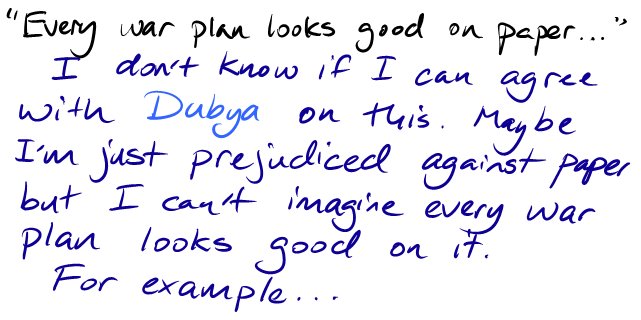 "Every war plan looks good on paper..."
I don't know if I can agree
with Dubya on this. Maybe
I'm just prejudiced against paper
but I can't imagine every war
plan looks good on it.
For example...